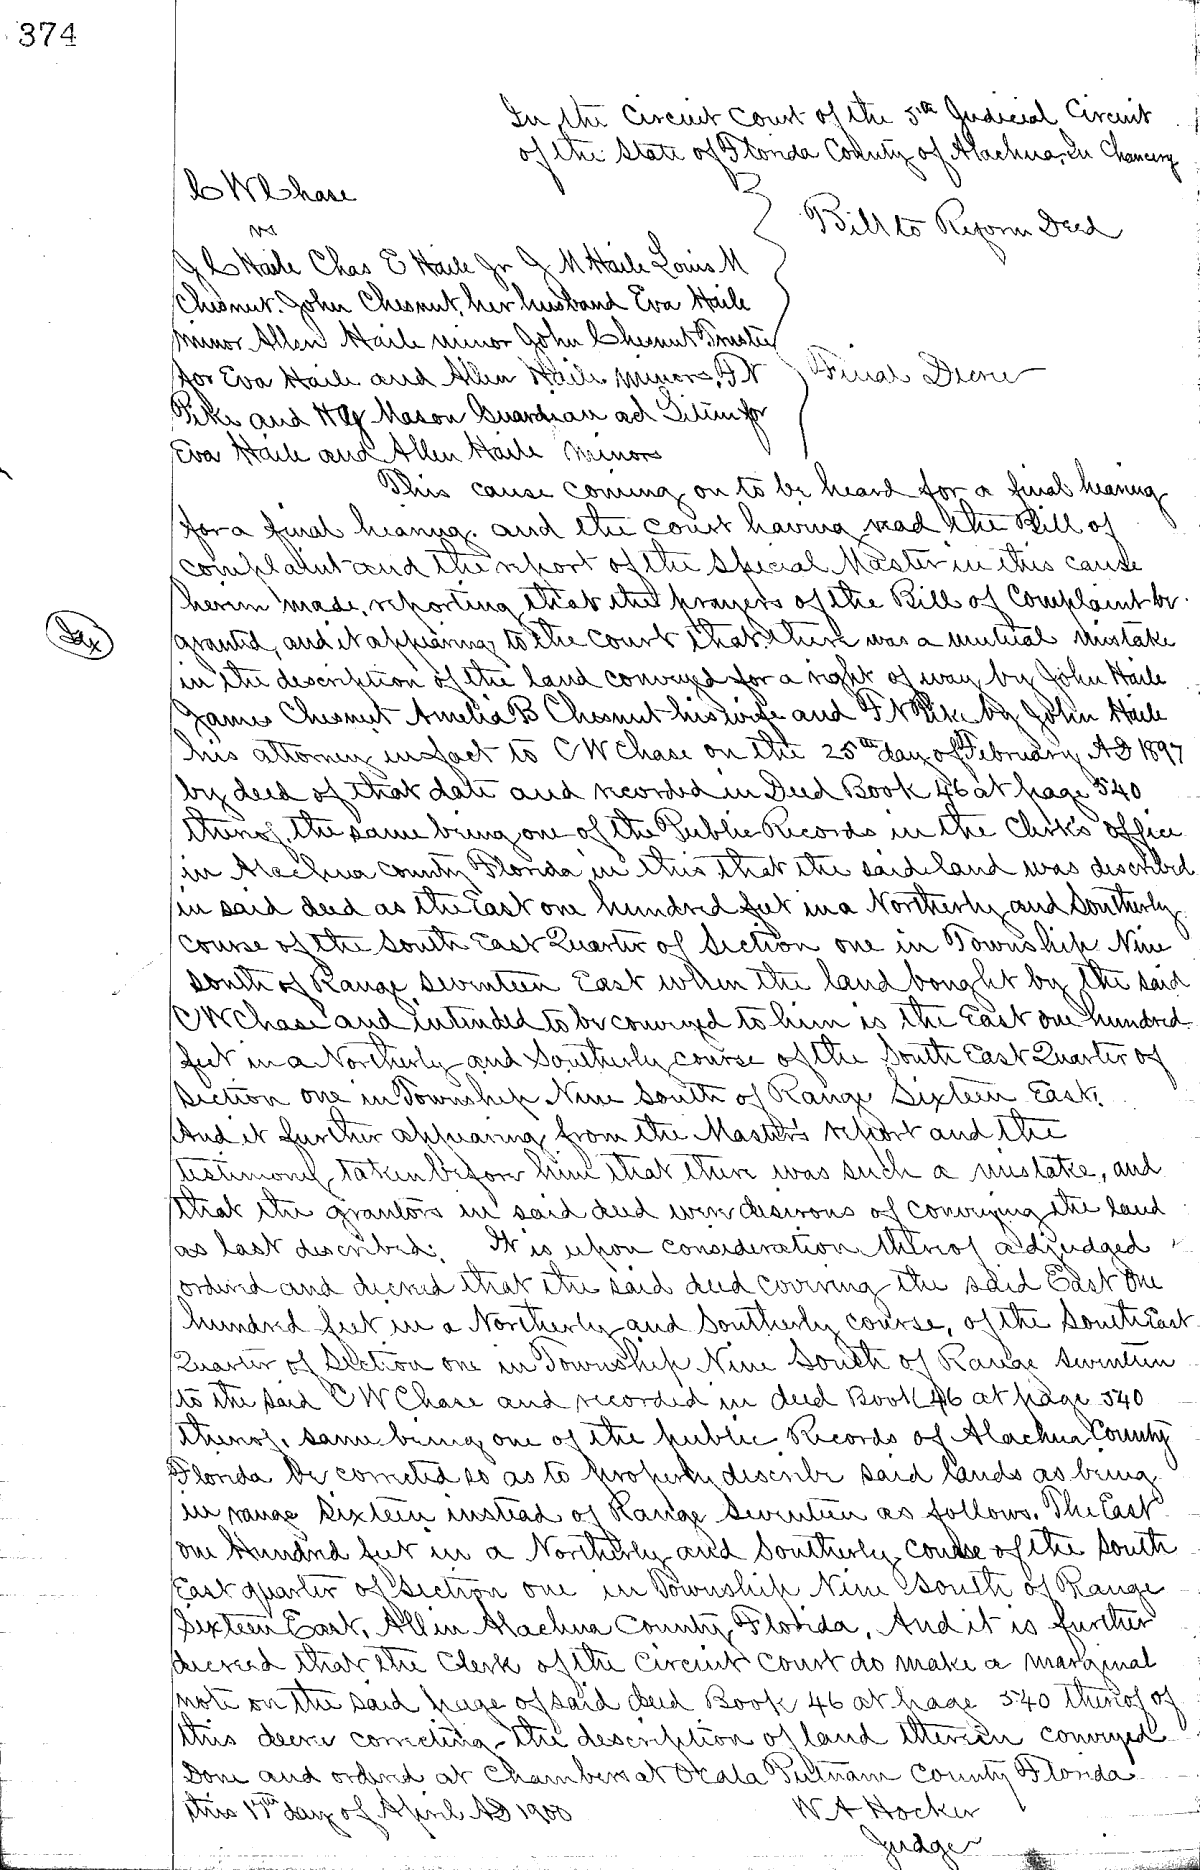 374
In the Circuit Court of the 5th Judicial Circuit
of the State of Florida County of Alachua, In Chancery
C W Chase
vs
Bill to Reform Deed
J C Haile Chas E Haile Jr J M Haile Louis M
Chesnut. John Chesnut, her husband Eva Haile
minor Allen Haile minor John Chesnut Trustee
for Eva Haile and Allen Haile minors, F N
Final Decree
Pike and H G Mason Guardian ad Litum for
Eva Haile and Allen Haile minors
This cause coming on to be heard for a final hearing
for a final hearing. and the court having read the Bill of
complaint and the report of the Special Master in this cause
herein made, reporting that the prayers of the Bill of Complaint be
granted, and it appearing to the Court that there was a mutual mistake
in the description of the land conveyed for a right of way by John Haile
James Chesnut Amelia B Chesnut his wife and F N Pike by John Haile
his attorney in fact to C W Chase on the 25th day of February AD 1897
by deed of that date and recorded in Deed Book 46 at page 540
thereof, the same being one of the Public Records in the Clerks office
in Alachua County Florida in this that the said land was described
in said deed as the East one hundred feet in a Northerly and Southerly
course of the South East Quarter of Section one in Township Nine
South of Range Seventeen East when the land bought by the said
C W Chase and intended to be conveyed to him is the East one hundred
feet in a Northerly and Southerly course of the South East Quarter of
Section one in Township Nine South of Range Sixteen East.
And it further appearing from the Masters report and the
testimony taken before him that there was such a mistake, and
that the grantors in said deed were desirous of conveying the land
as last described. It is upon consideration thereof adjudged
ordered and decreed that the said deed covering the said East One
hundred feet in a Northerly and Southerly course, of the South East
Quarter of Section one in Township Nine South of Range Seventeen
to the said C W Chase and recorded in deed Book 46 at page 540
thereof, same being one of the public Records of Alachua County
Florida be corrected so as to properly describe said lands as being
in range Sixteen instead of Range Seventeen as follows. The East
one Hundred feet in a Northerly and Southerly course of the South
East quarter of Section one in Township Nine South of Range
Sixteen East, All in Alachua County, Florida. And it is further
decreed that the Clerk of the Circuit Court do make a marginal
note on the said page of said deed Book 46 at page 540 thereof of
this decree correcting the description of land therein conveyed
Done and ordered at Chambers at Ocala Putnam County Florida
this 17th day of April AD 1900
W A Hocker
Judge